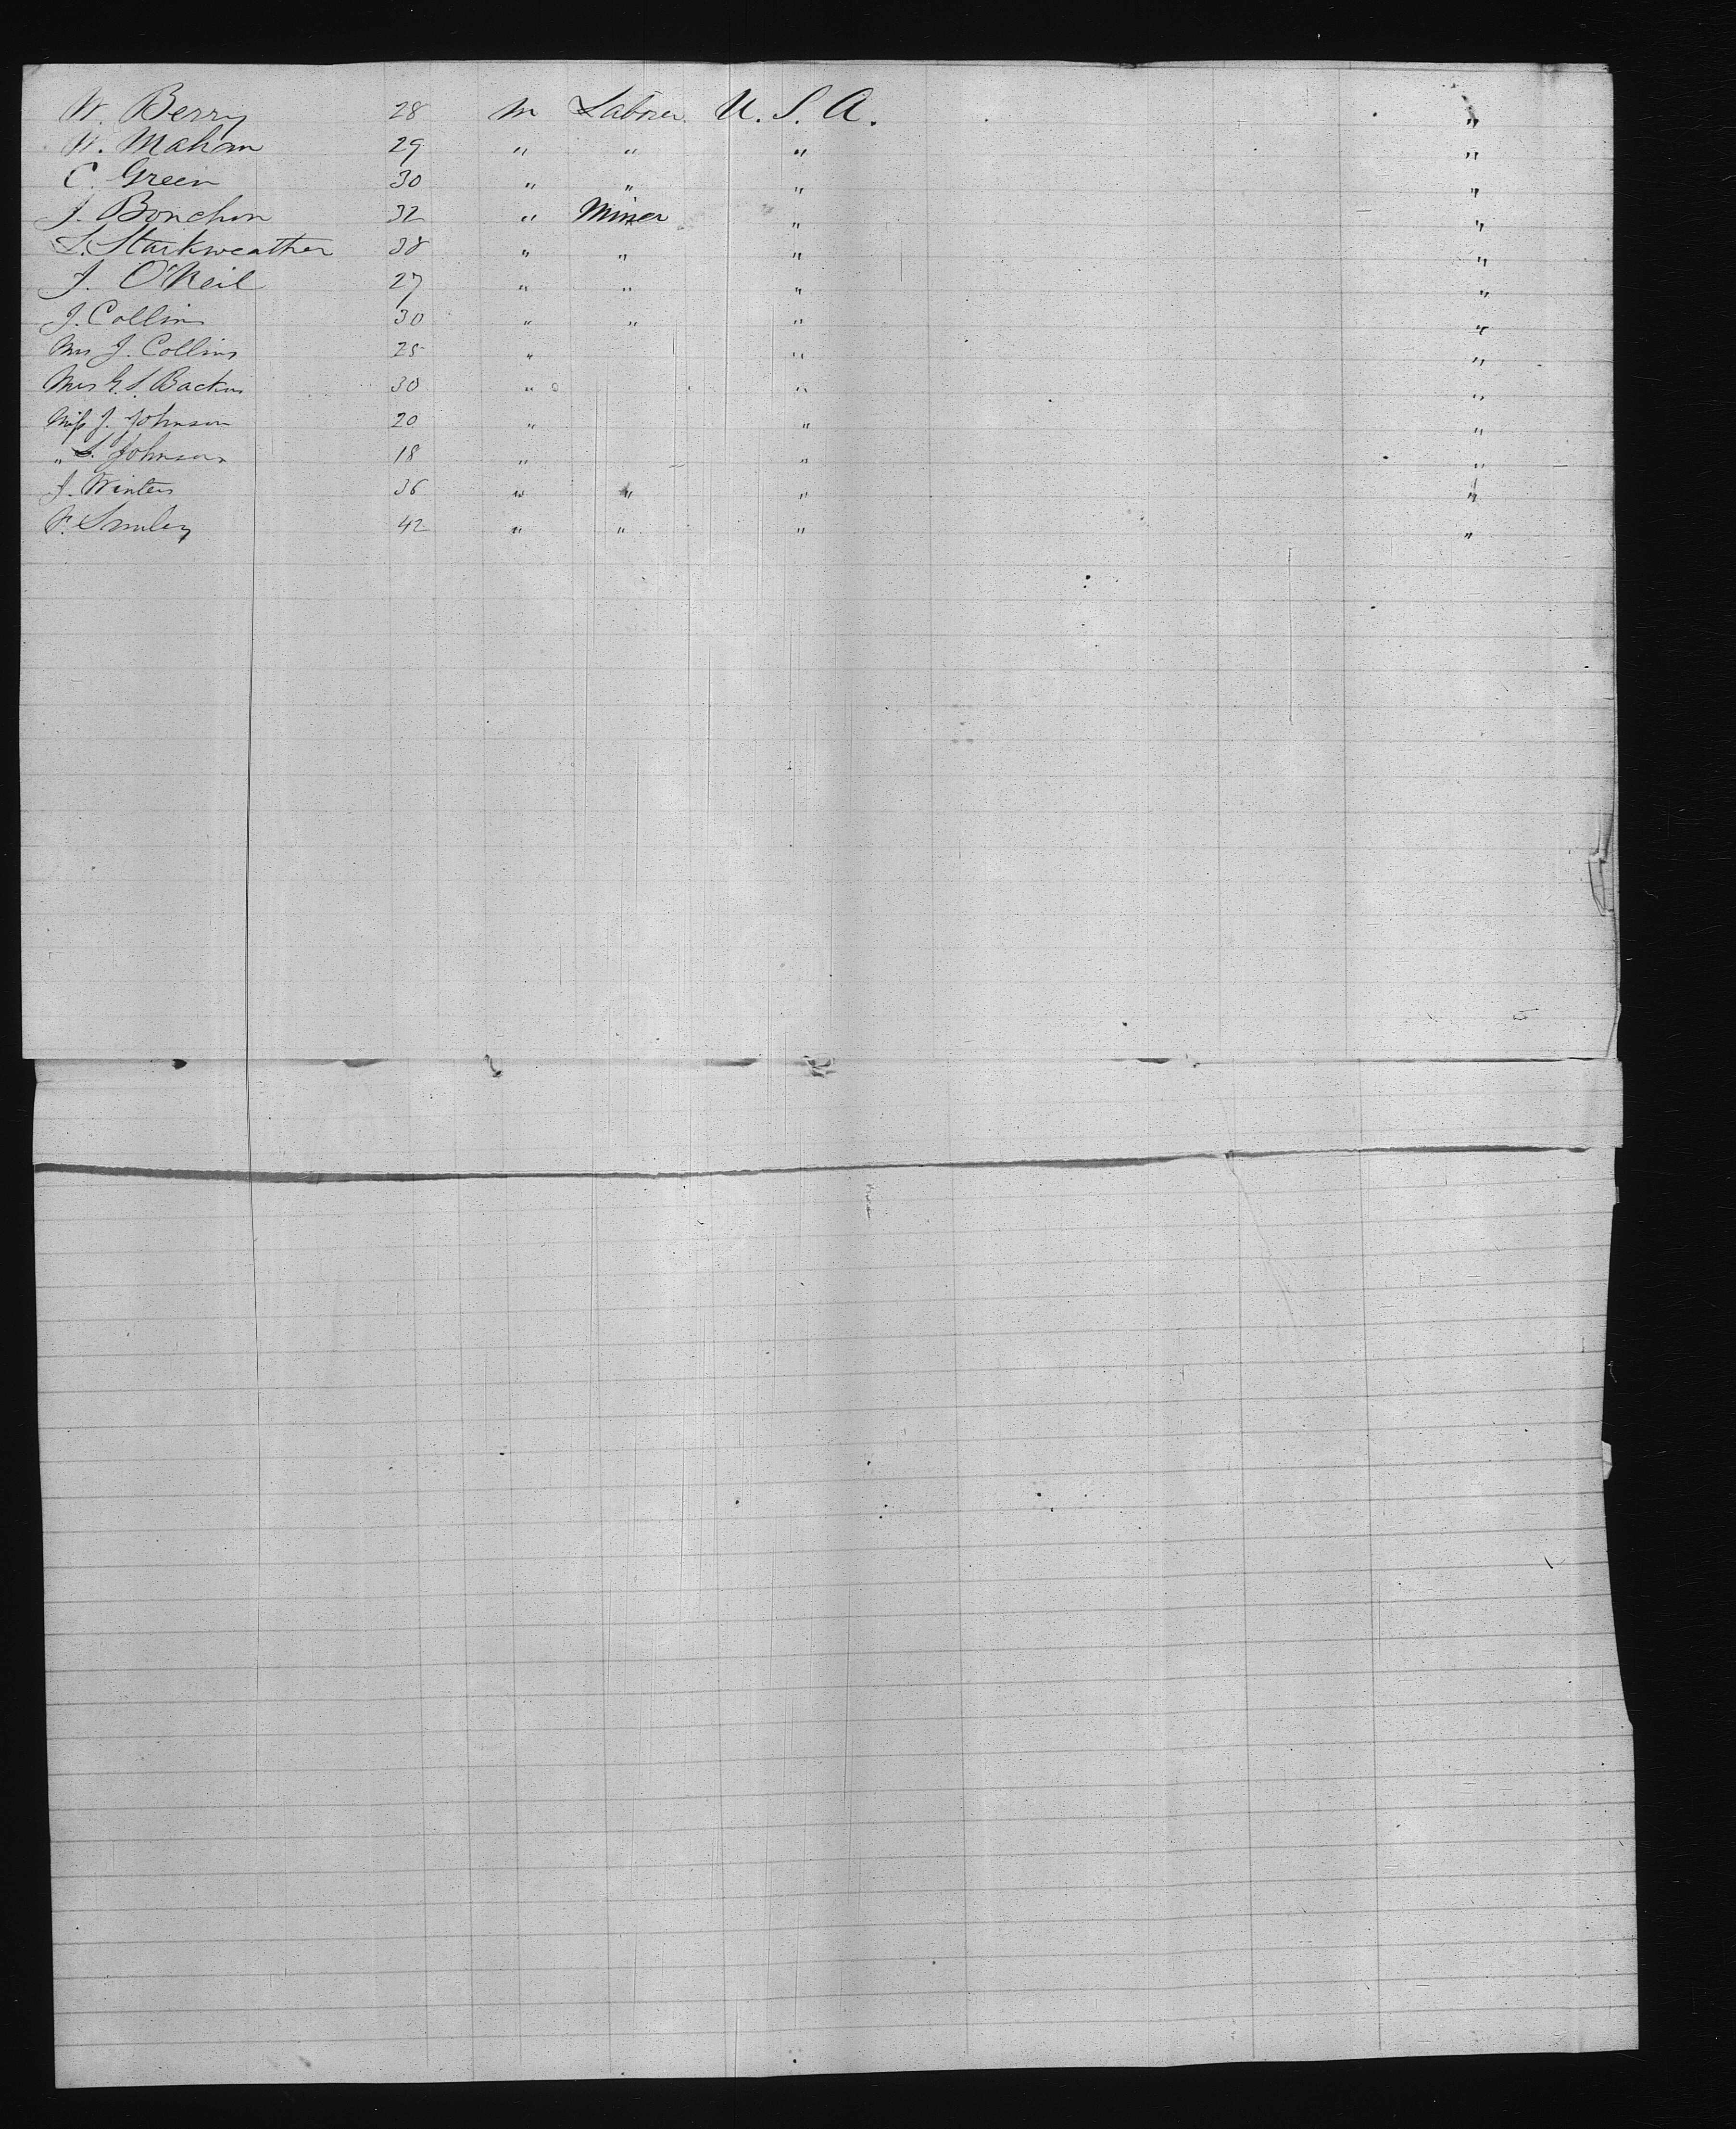 W. Berry 28 m Laborer U. S. A. "
W. Mahon 29 " " " "
C. Green 30 " " " "
J. Bonchon 32 " Miner " "
S. Starkweather 38 " " " "
J. O'Neil 27 " " " "
J. Collins 30 " " " "
Mrs J. Collins 25 " " "
Mrs G. S. Backus 30 " " "
Miss J. Johnson 20 " " "
" S. Johnson 18 " " "
J. Winters 36 " " " "
42 " " " "